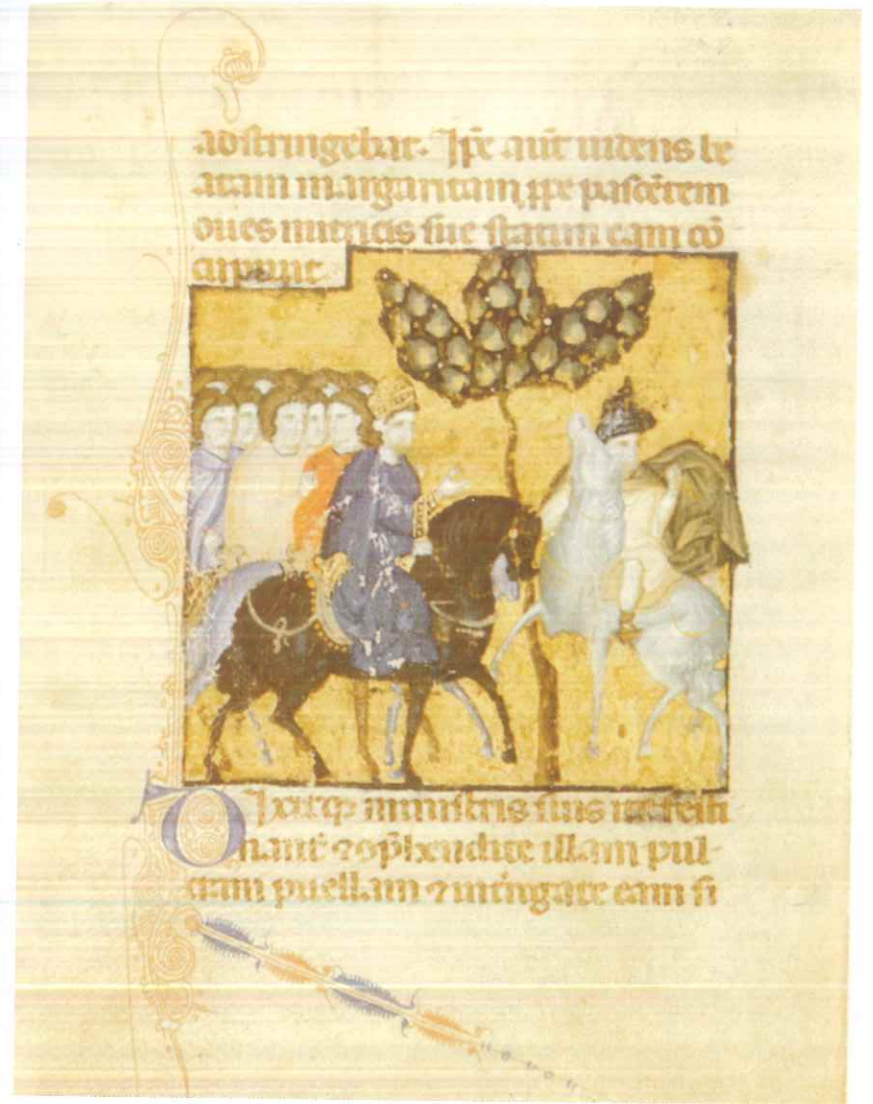 adstringebat. Ip̄e aūt uidens be
atam margaritam ip̄e pascētem
oues nutricis sue statim eam cō
cupiuit.
Dixitq; ministris suis ut festi
nant ⁊ cōp̄hendite illam pul-
cram puellam ⁊ intr̄ogate eam si